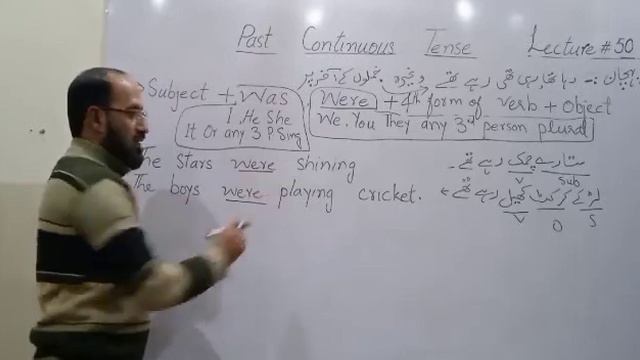 Past Continuous Tense Lecture # 50
پہچان :- رہا تھا، رہی تھی، رہے تھے وغیرہ جملوں کے آخر پر
Subject + Was Were + 4th form of verb + Object
I. He She We. You They any 3rd person plural
It Or any 3 P Sing
The Stars were shining ستارے چمک رہے تھے۔
V Sub
The boys were playing cricket. لڑکے کرکٹ کھیل رہے تھے
V O S